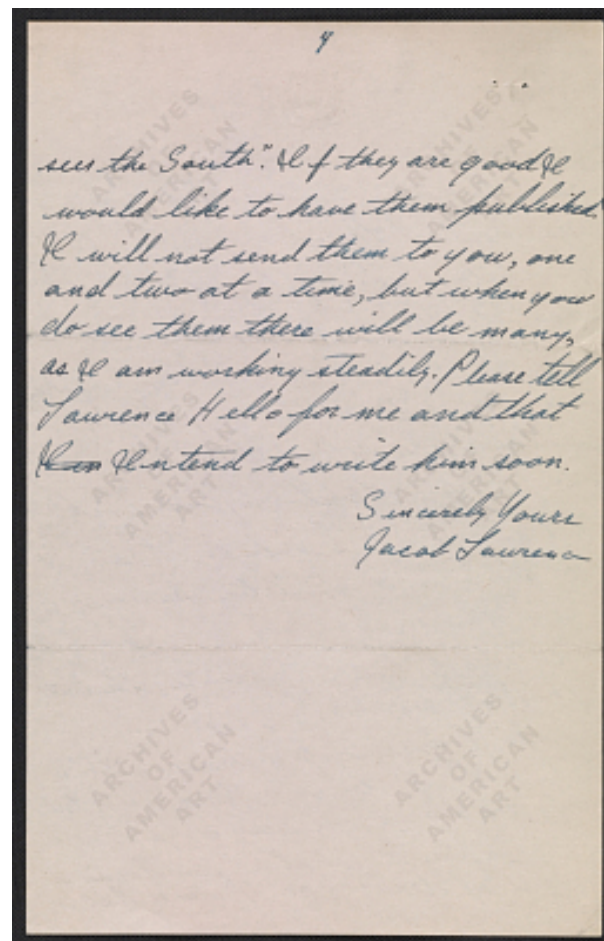 4
sees the South". If they are good I
would like to have them published.
I will not send them to you, one
and two at a time, but when you
do see them there will be many,
as I am working steadily. Please tell
Lawrence Hello for me and that
Intend to write him soon.
Sincerely Yours
Jacob Lawrence
ARCHIVES
OF
AMERICAN
ART
ARCHIVES
OF
AMERICAN
ART
ARCHIVES
OF
AMERICAN
ART
ARCHIVES
OF
AMERICAN
ART
ARCHIVES
OF
AMERICAN
ART
ARCHIVES
OF
AMERICAN
ART